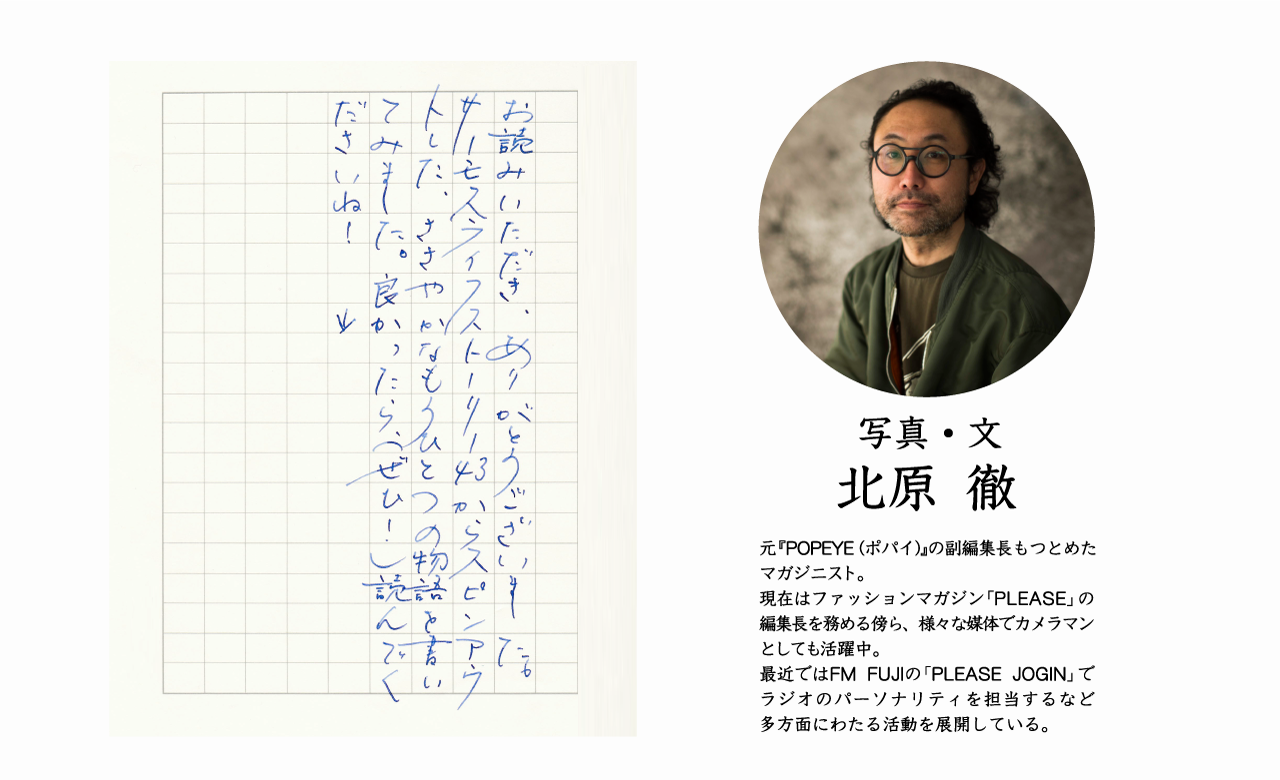 お読みいただき、ありがとうございました。
サーモスライフストーリー43からスピンアウ
トした、ささやかなもうひとつの物語を書い
てみました。良かったら、ぜひ!し読んでく
ださいね! ↓
写真・文
北原 徹
元『POPEYE(ポパイ)』の副編集長もつとめた
マガジニスト。
現在はファッションマガジン「PLEASE」の
編集長を務める傍ら、様々な媒体でカメラマン
としても活躍中。
最近ではFM FUJIの「PLEASE JOGIN」で
ラジオのパーソナリティを担当するなど
多方面にわたる活動を展開している。